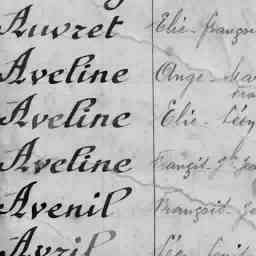 Auvret Elie - Françoi
Aveline Ange - Mar
Aveline Elie - Léon
Aveline Françis - Jn
Avenil François - Je
Avril